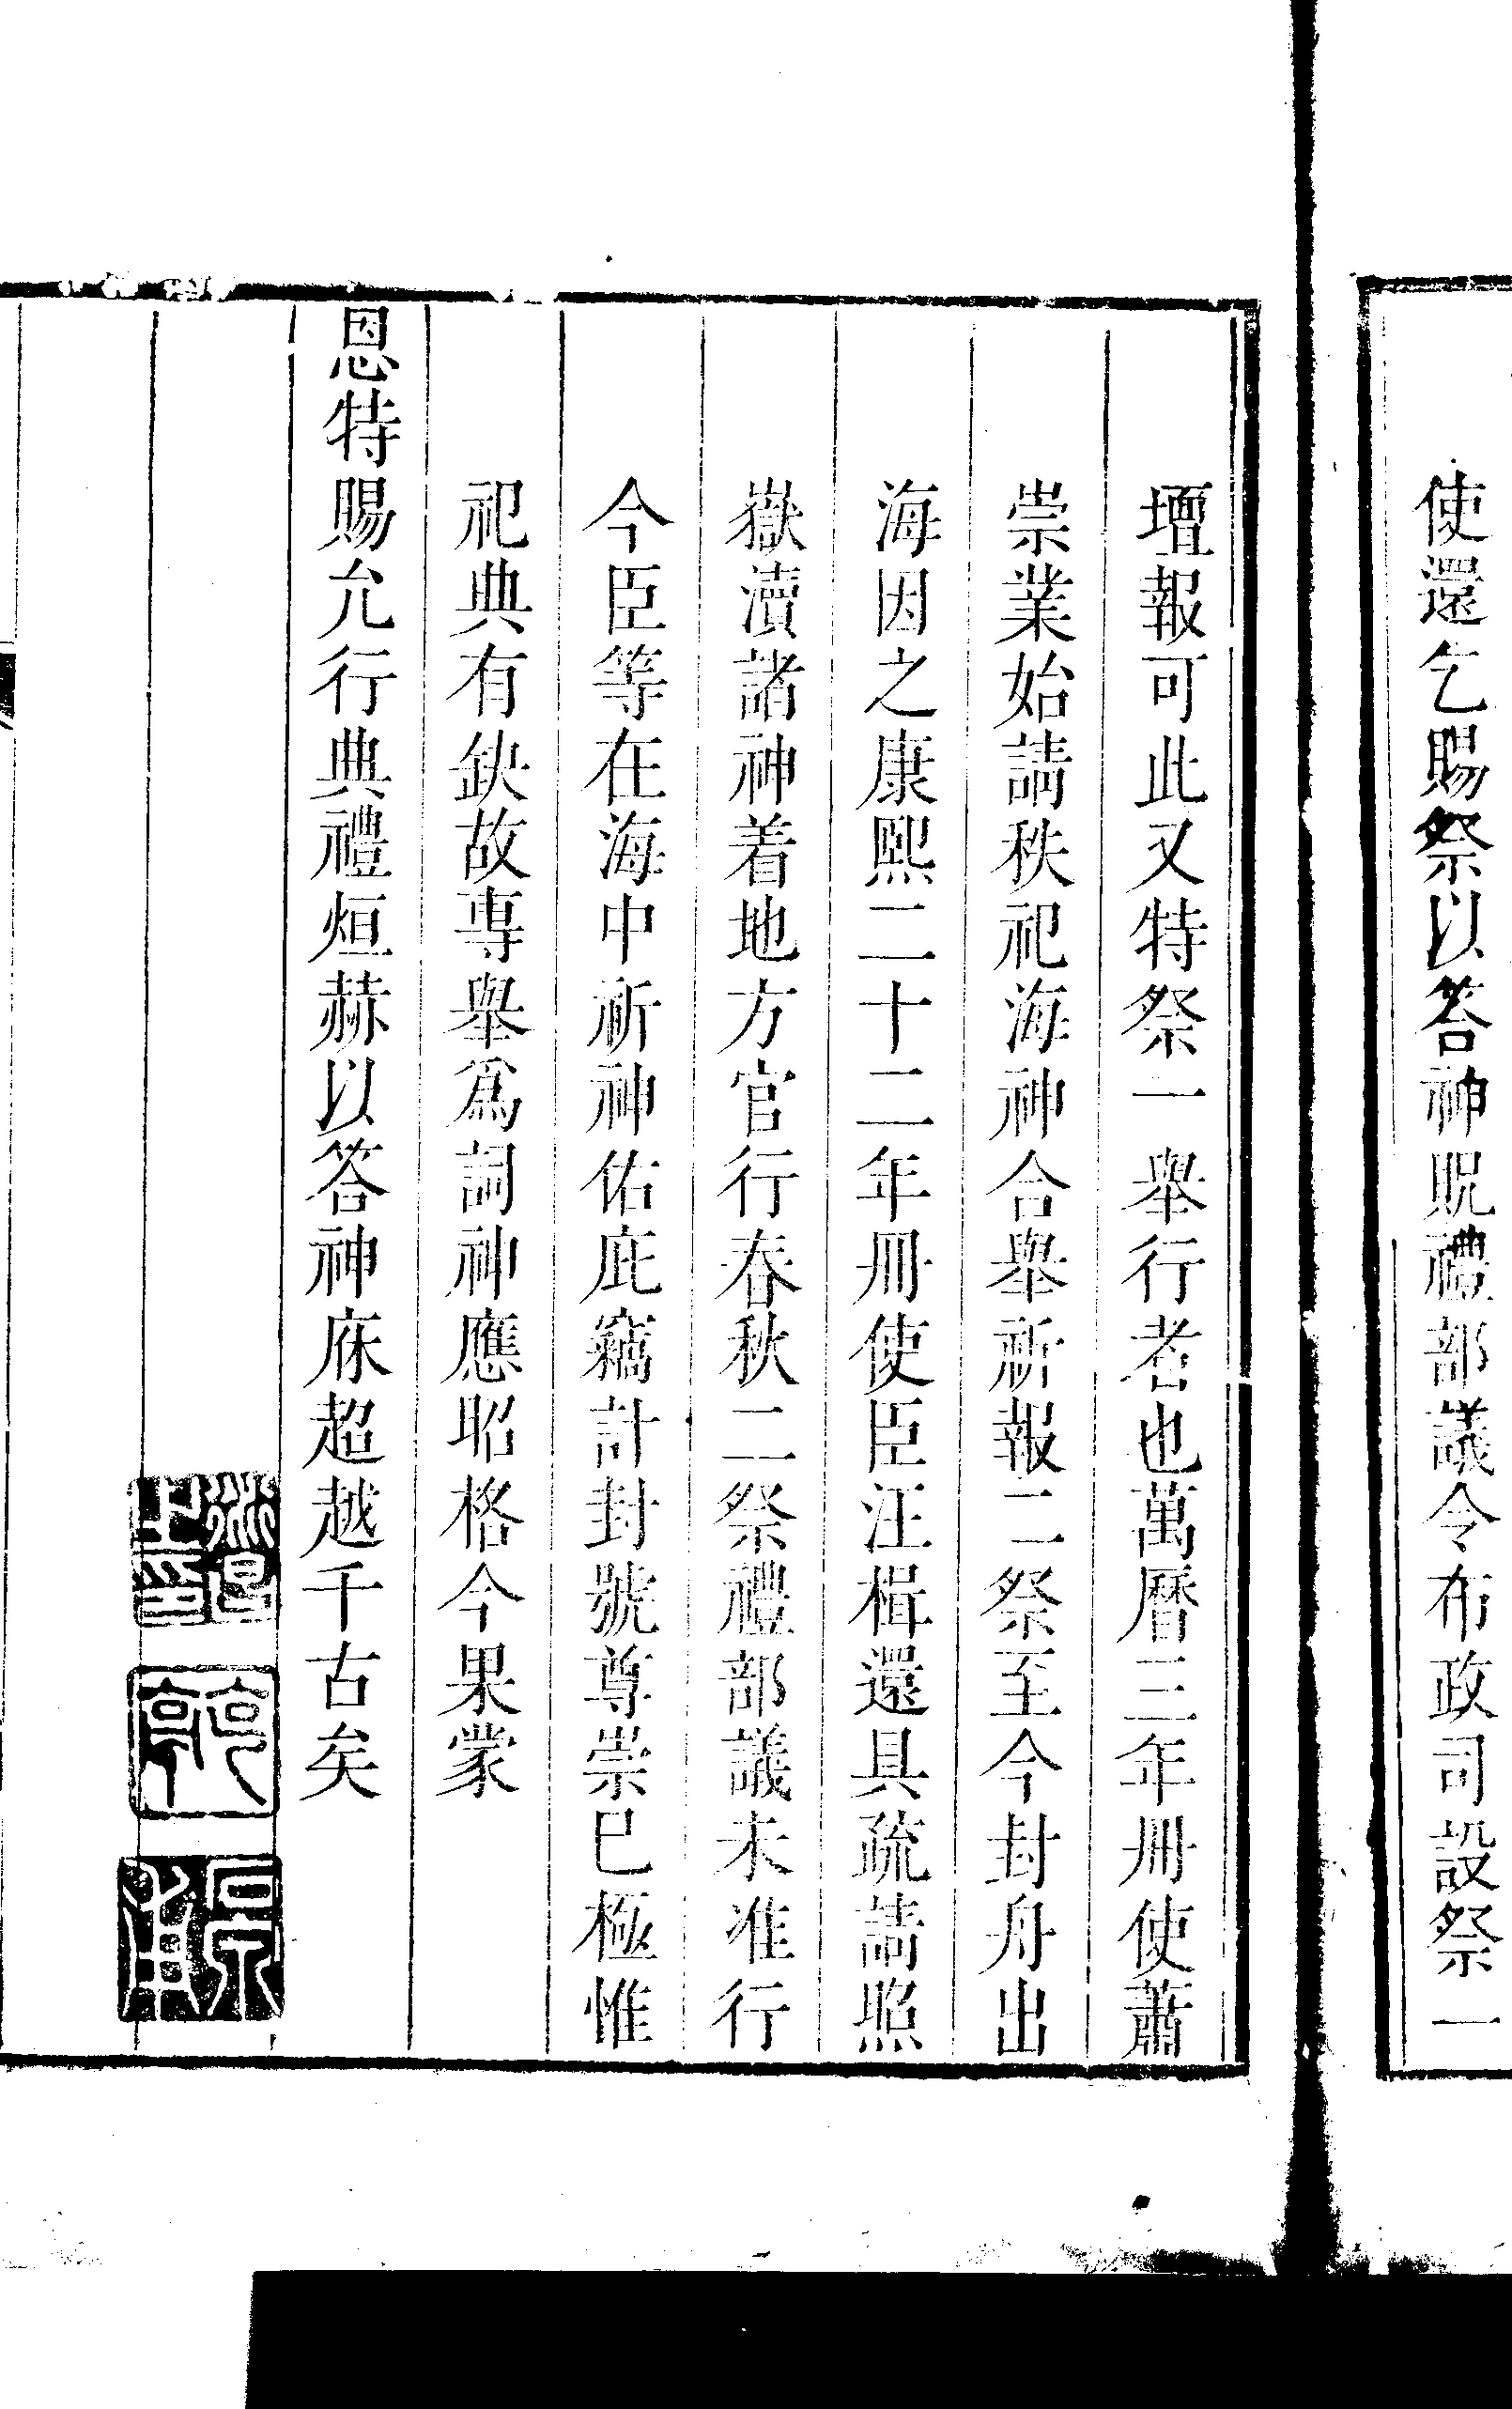 使還乞賜祭以答神貺禮部議令布政司設祭一
壇報可此又特祭一舉行者也萬曆三年冊使蕭
崇業始請秩祀海神合舉祈報二祭至今封舟出
海因之康熙二十二年冊使臣汪楫還具疏請照
嶽瀆諸神着地方官行春秋二祭禮部議未准行
今臣等在海中祈神佑庇竊計封號尊崇已極惟
祀典有缺故專舉爲詞神應昭格今果蒙
恩特賜允行典禮烜赫以答神庥超越千古矣